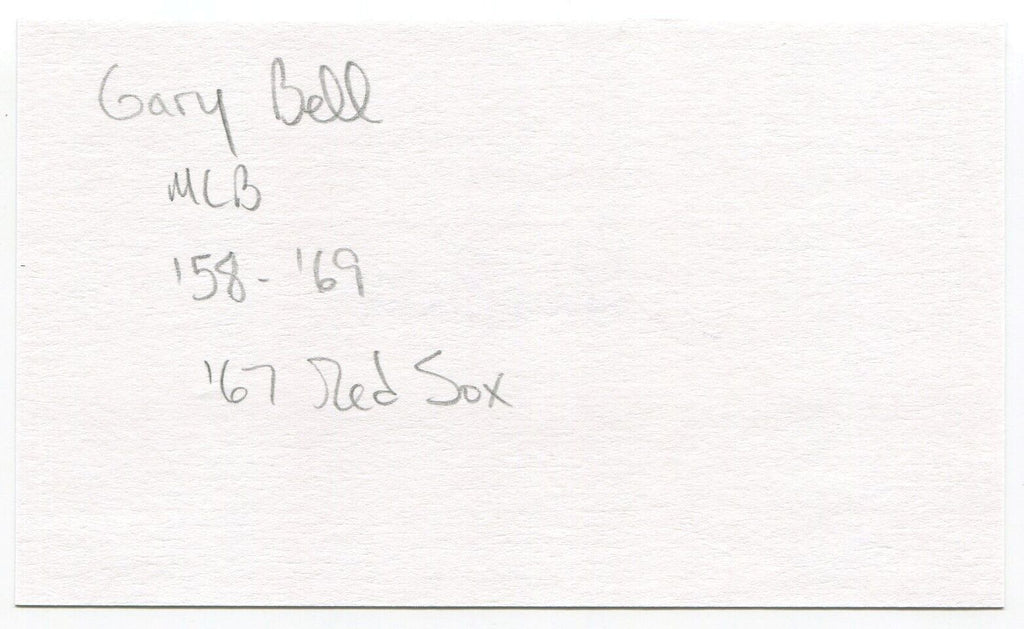 Gary Bell
MLB
'58 - '69
'67 Red Sox